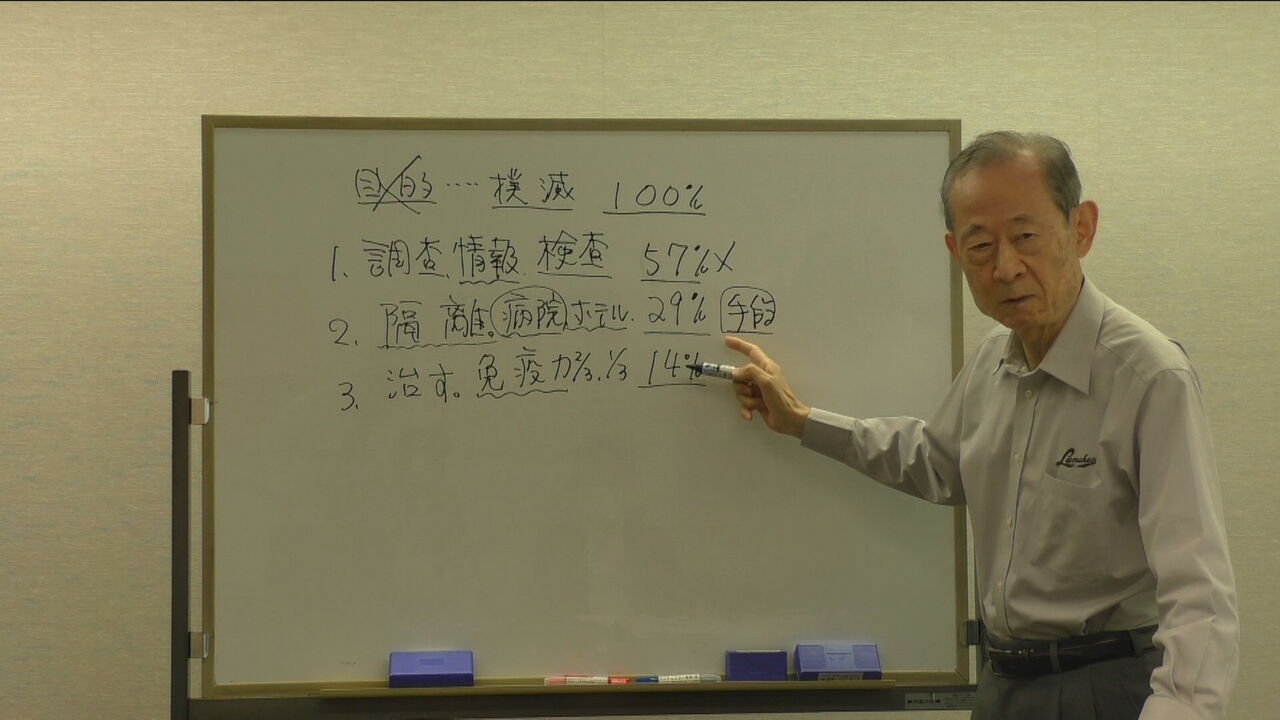 目的‥‥撲滅 100%
1. 調査、情報、検査 57%×
2. 隔離。病院、ホテル. 29% 手段
3. 治す。免疫力2/3、1/3 14%